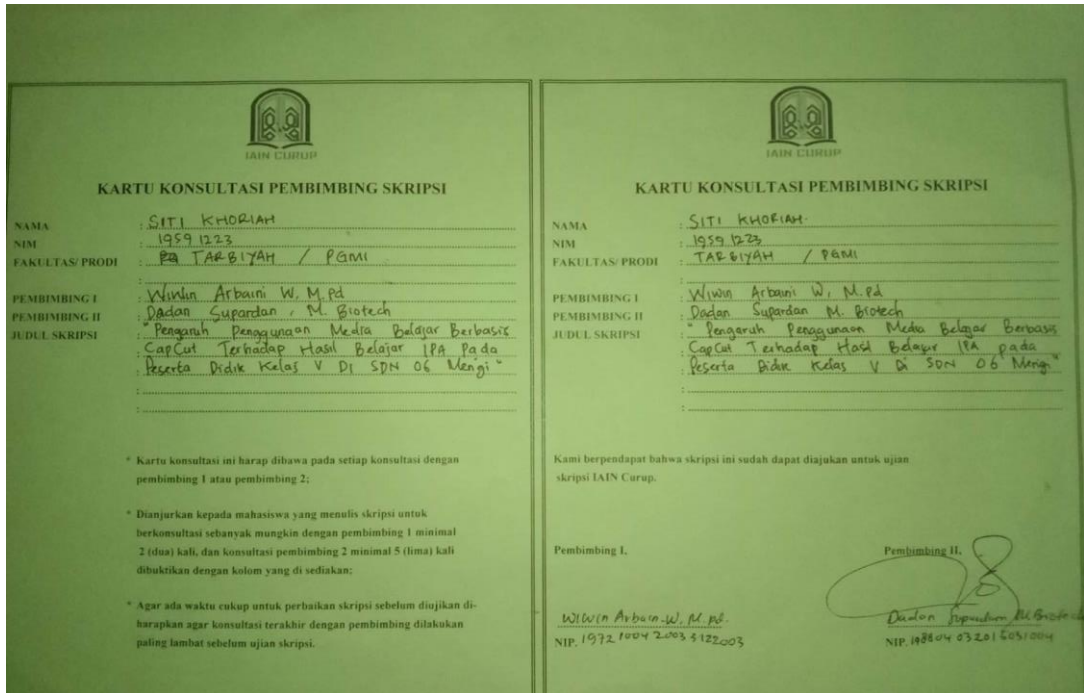 IAIN CURUP
KARTU KONSULTASI PEMBIMBING SKRIPSI
NAMA : SITI KHORIAH
NIM : 19591223
FAKULTAS/ PRODI : TARBIYAH / PGMI
PEMBIMBING I : Wiwin Arbaini W, M.Pd
PEMBIMBING II : Dadan Supardan, M. Biotech
JUDUL SKRIPSI : "Pengaruh Penggunaan Media Belajar Berbasis
: CapCut Terhadap Hasil Belajar IPA Pada
: Peserta Didik Kelas V Di SDN 06 Merigi"
:
:
* Kartu konsultasi ini harap dibawa pada setiap konsultasi dengan
pembimbing 1 atau pembimbing 2;
* Dianjurkan kepada mahasiswa yang menulis skripsi untuk
berkonsultasi sebanyak mungkin dengan pembimbing 1 minimal
2 (dua) kali, dan konsultasi pembimbing 2 minimal 5 (lima) kali
dibuktikan dengan kolom yang di sediakan;
* Agar ada waktu cukup untuk perbaikan skripsi sebelum diujikan di-
harapkan agar konsultasi terakhir dengan pembimbing dilakukan
paling lambat sebelum ujian skripsi.
IAIN CURUP
KARTU KONSULTASI PEMBIMBING SKRIPSI
NAMA : SITI KHORIAH
NIM : 19591223
FAKULTAS/ PRODI : TARBIYAH / PGMI
:
PEMBIMBING I : Wiwin Arbaini W, M.Pd
PEMBIMBING II : Dadan Supardan M. Biotech
JUDUL SKRIPSI : "Pengaruh Penggunaan Media Belajar Berbasis
: CapCut Terhadap Hasil Belajar IPA pada
: Peserta Didik Kelas V Di SDN 06 Merigi"
:
:
Kami berpendapat bahwa skripsi ini sudah dapat diajukan untuk ujian
skripsi IAIN Curup.
Pembimbing I,
Pembimbing II,
Wiwin Arbain.W, M.Pd.
Dadan Supardan M.Biotech
NIP. 19721004 2003 122003
NIP. 198804032015031004